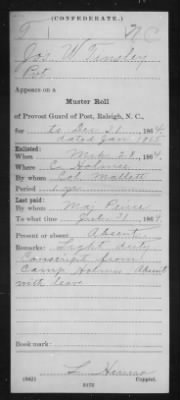 (CONFEDERATE.)
T N C
Jos W Tinsley
Pvt
Appears on a
Muster Roll
of Provost Guard of Post, Raleigh, N. C.,
for to Dec 31, 1864.
dated Jan 1865
Enlisted:
When 28, 1864.
Where C. Holmes
By whom Col. Mallett
Period
Last paid:
By whom Maj Peirce
To what time 31, 1864.
Present or absent Absent
Remarks: Light duty
Conscript from
Camp Holmes Absent
with leave
Copyist.